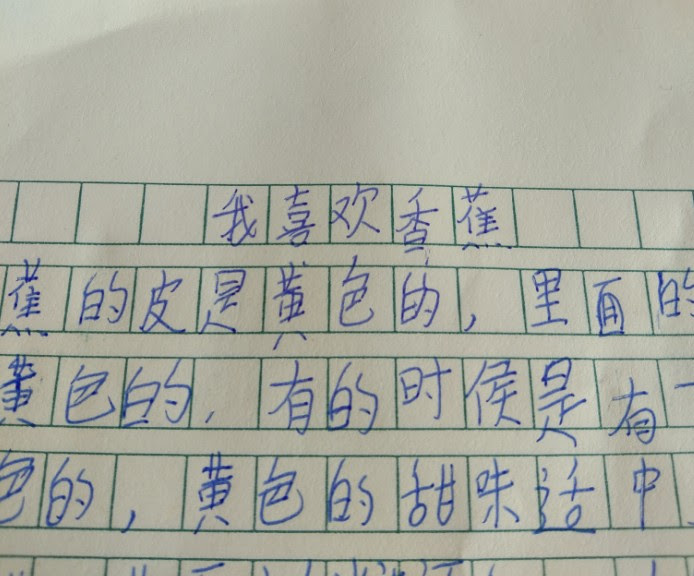 我喜欢香蕉
蕉的皮是黄色的，里面的
黄色的，有的时侯是有一
色的，黄色的甜味适中